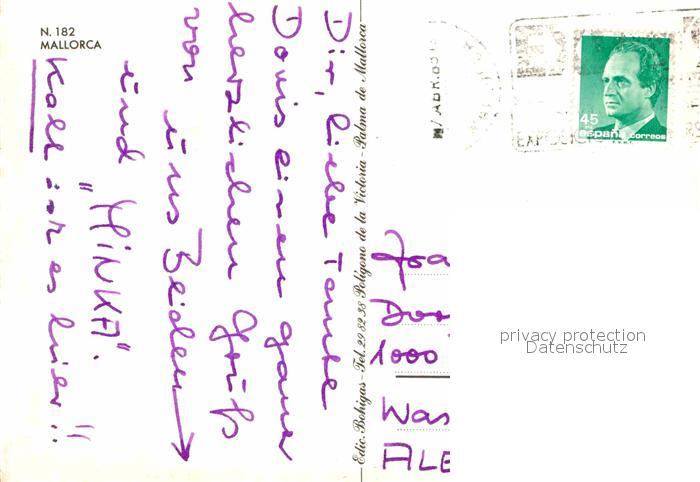 N. 182
MALLORCA
Dir, liebe Tante
Doris einen ganz
herzlichen Gruß
von
uns Beiden
und "MINKA".
Kalt ist es hier!!
Edic. Bohigas - Tel. 29 82 38 Polígono de la Victoria - Palma de Mallorca
ABR. 89
45
españa correos
EXPOSICIO
1000
Was
ALE
privacy protection
Datenschutz